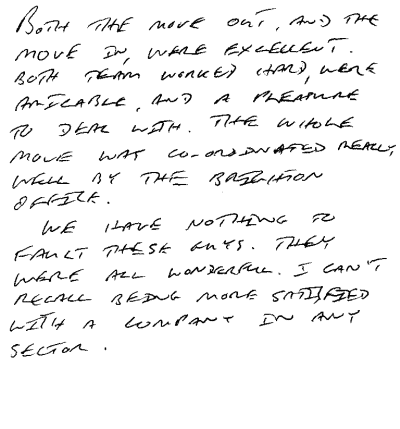 BOTH THE MOVE OUT, AND THE
MOVE IN, WERE EXCELLENT.
BOTH TEAM WORKED HARD, WERE
AMICABLE, AND A PLEASURE
TO DEAL WITH. THE WHOLE
MOVE WAS CO-ORDINATED REALLY
WELL BY THE BRIGHTON
OFFICE.
WE HAVE NOTHING TO
FAULT THESE GUYS. THEY
WERE ALL WONDERFUL. I CAN'T
RECALL BEING MORE SATISFIED
WITH A COMPANY IN ANY
SECTOR.